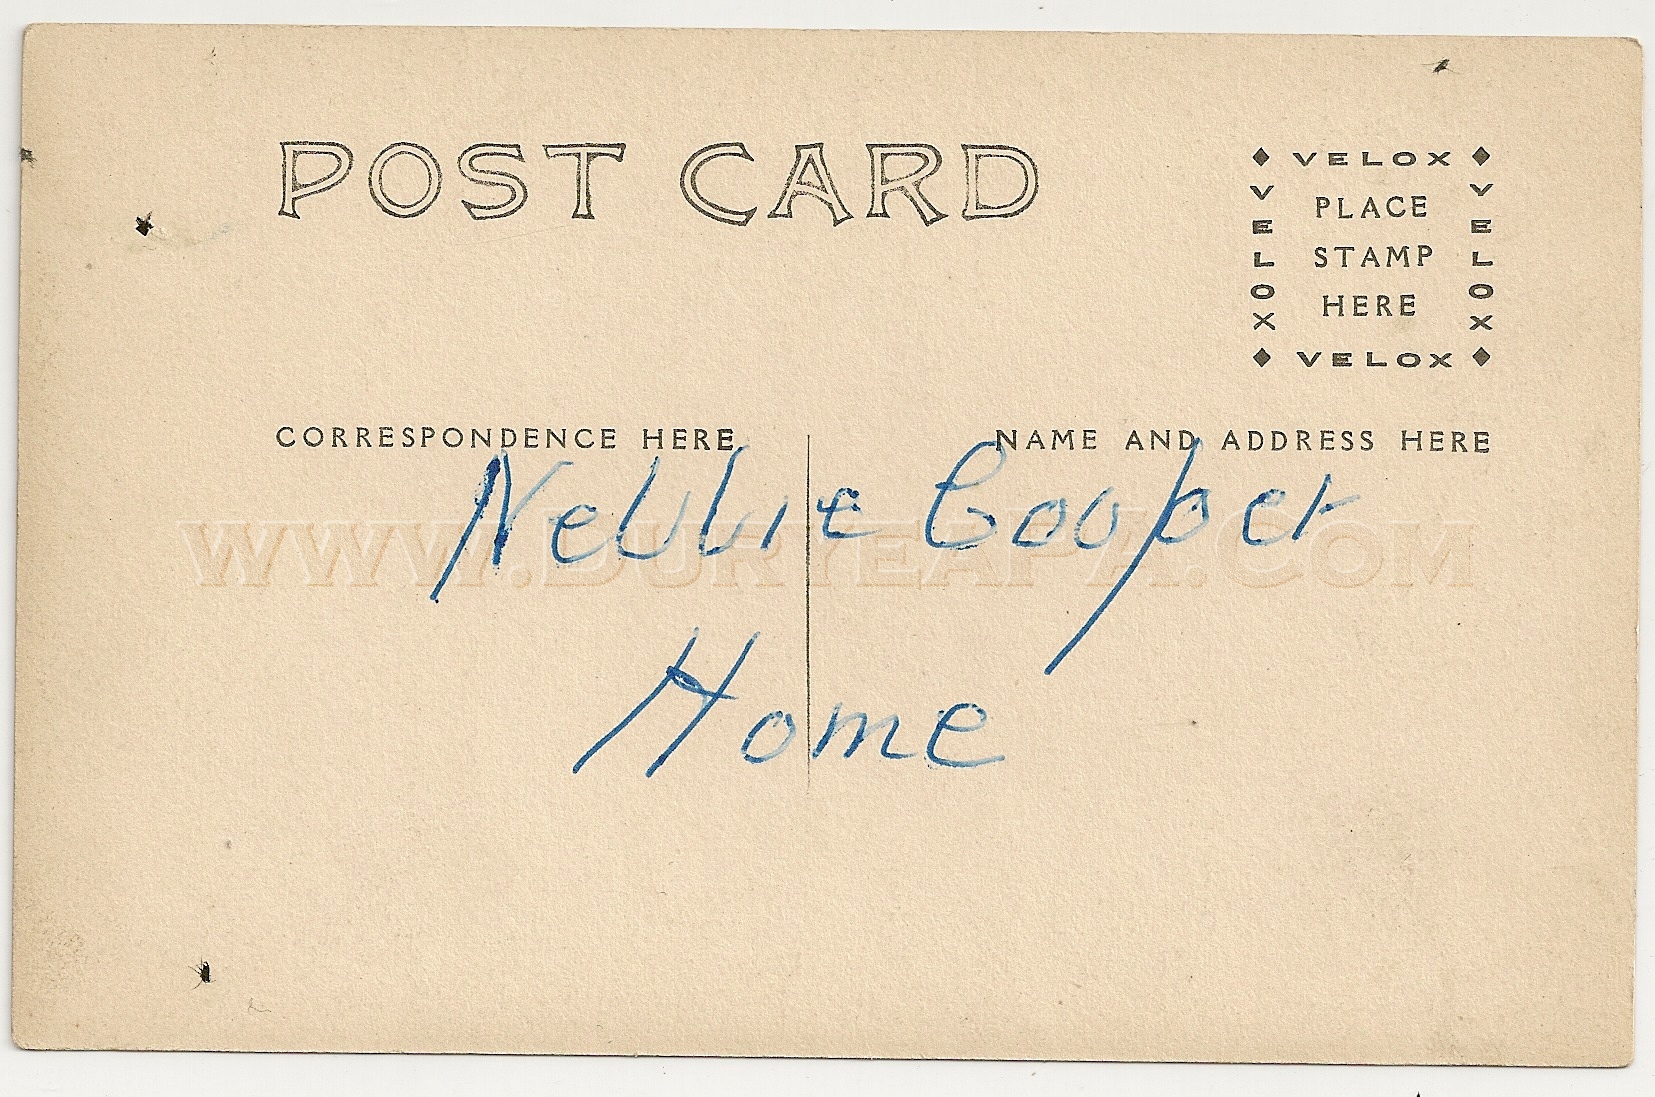 POST CARD
VELOX
VELOX
VELOX
PLACE
STAMP
HERE
VELOX
CORRESPONDENCE HERE
NAME AND ADDRESS HERE
Nellie Cooper
www.DuryeaPA.Com
Home